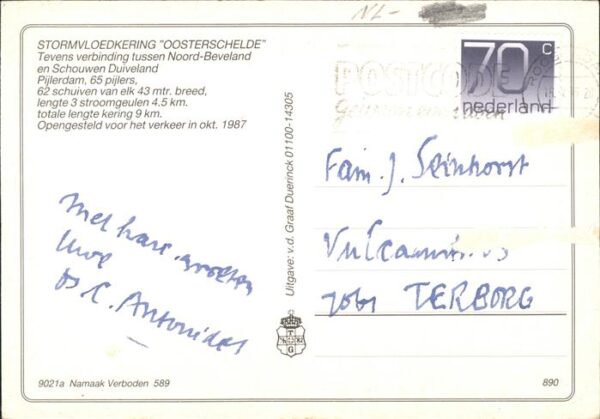 NL-
STORMVLOEDKERING "OOSTERSCHELDE"
Tevens verbinding tussen Noord-Beveland
en Schouwen Duiveland
Pijlerdam, 65 pijlers,
62 schuiven van elk 43 mtr. breed,
lengte 3 stroomgeulen 4.5 km.
totale lengte kering 9 km.
Opengesteld voor het verkeer in okt. 1987
70 c
nederland
POSTCODE
Met hart. groeten
Uwe
Ds C. Antonides
Uitgave: v.d. Graaf Duerinck 01100-14305
Fam. J. Seinhorst
7061 TERBORG
T G
9021a Namaak Verboden 589
890